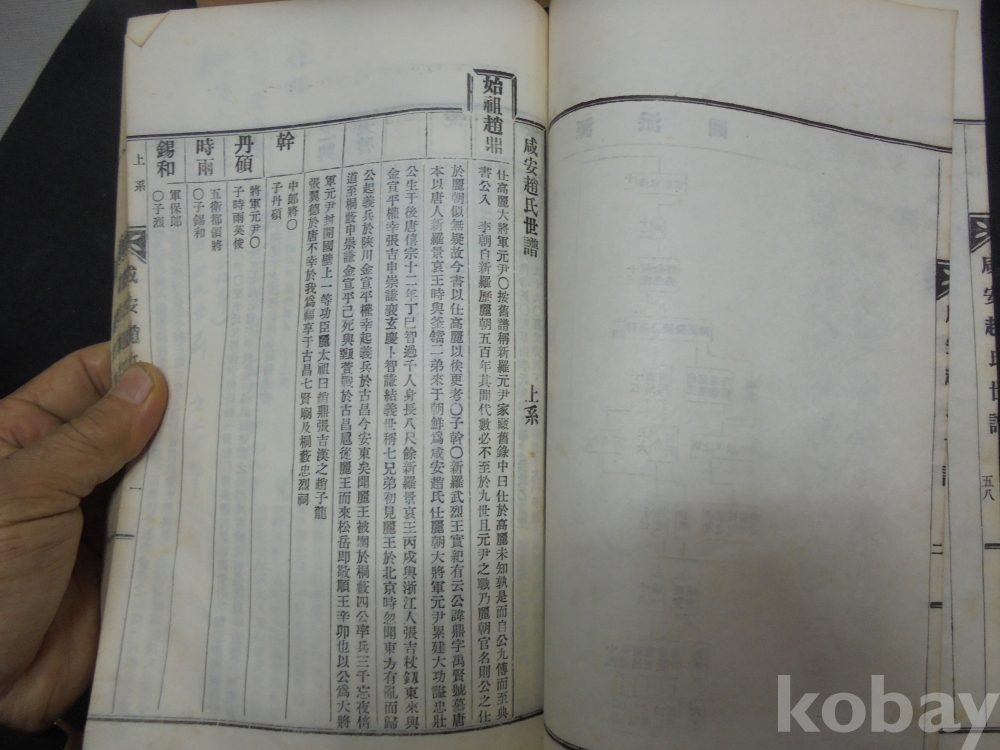 咸安趙氏世譜 上系
始祖趙鼎
仕高麗大將軍元尹〇按舊譜稱新羅元尹家藏舊錄中曰仕於高麗未知孰是而自公九傳而至典
書公入 李朝自新羅歷麗朝五百年其間代數必不至於九世且元尹之職乃麗朝官名則公之仕
於麗朝似無疑故今書以仕高麗以俟更考〇子幹〇新羅武烈王實紀有云公諱鼎字禹賢號慕唐
本以唐人新羅景哀王時與釜鐺二弟來于朝鮮爲咸安趙氏仕麗朝大將軍元尹累建大功諡忠壯
公生于後唐僖宗十二年丁巳智過千人身長八尺餘新羅景哀王丙戌與浙江人張吉杖釼東來與
金宣平權幸張吉申崇謙裵玄慶卜智謙結義世稱七兄弟初見麗王於北京時忽聞東方有亂而歸
公起義兵於陜川金宣平權幸起義兵於古昌今安東矣聞麗王被圍於桐藪四公率兵三千忘夜倍
道至桐藪申崇謙金宣平已死與甄萱戰於古昌扈從麗王而來松岳卽敬順王辛卯也以公爲大將
軍元尹封開國壁上一等功臣麗太祖曰趙鼎張吉漢之趙子龍
張翼德於唐不幸於我爲福享于古昌七賢廟及桐藪忠烈祠
幹
中郎將〇
子丹碩
丹碩
將軍元尹〇
子時雨英俊
時雨
五衛都領將
〇子錫和
錫和
軍保郎
〇子烈
上系
咸安趙氏
一
咸安趙氏世譜
五八
二
kobay